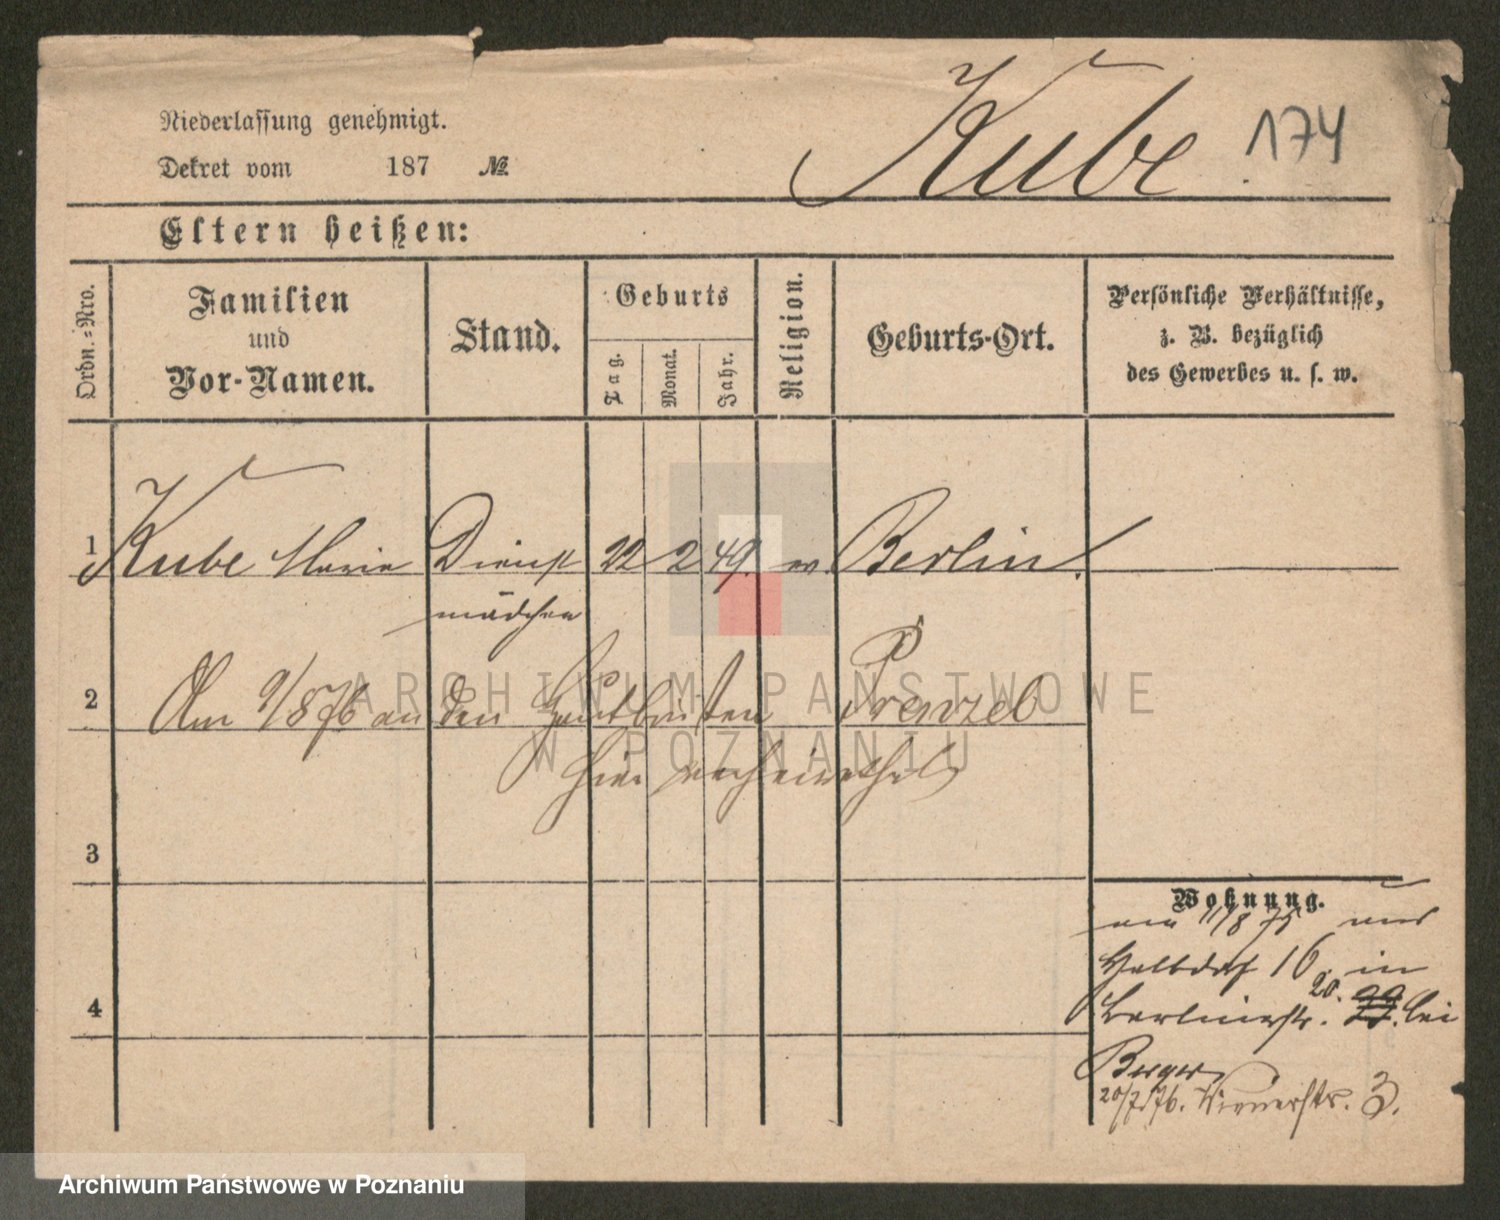 Niederlassung genehmigt.
Dekret vom 187 №
Kube
174
Eltern heißen:
Ordn.=Nro.
Familien
und
Vor-Namen.
Stand.
Geburts
Tag.
Monat.
Jahr.
Religion.
Geburts-Ort.
Persönliche Verhältnisse,
z. B. bezüglich
des Gewerbes u. s. w.
1 Kube Marie Dienst 22 2 49. ev. Berlin
mädchen
2 Am 9/8 76 an den Prenzel
hier verheirathet
3
4
Wohnung.
am 11/8 75 aus
Halbdorf 16 in
Berlinerstr. 20. bei
Berger
20/7 76. 3.
ARCHIWUM PAŃSTWOWE
W POZNANIU
Archiwum Państwowe w Poznaniu